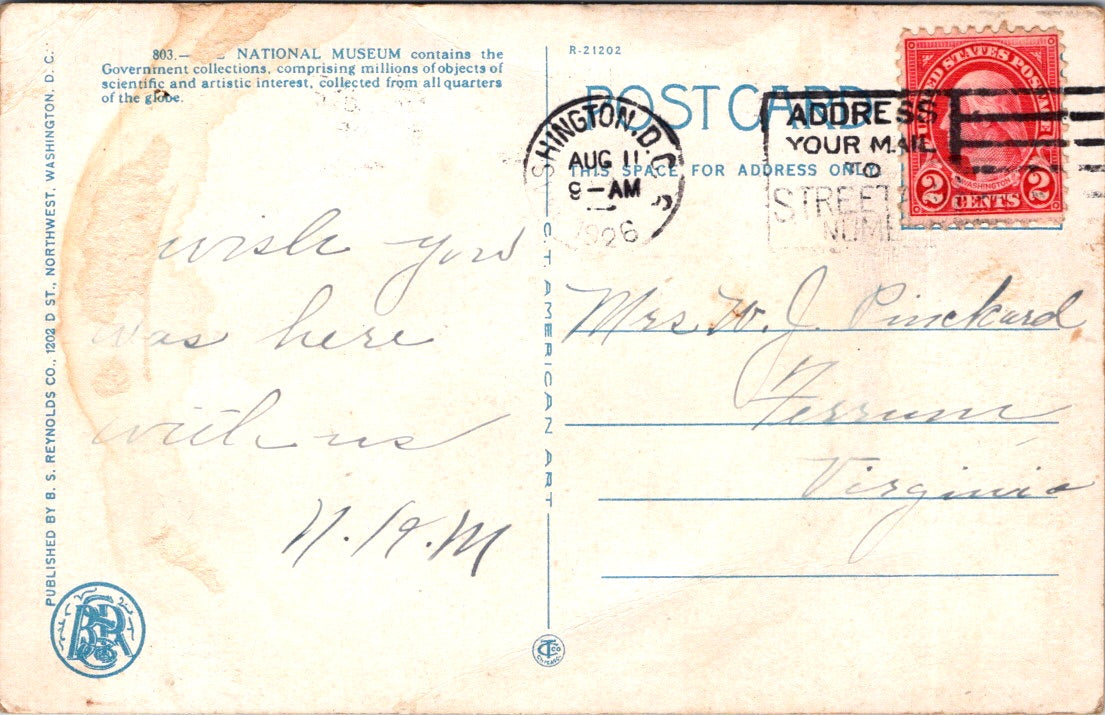 803.— NATIONAL MUSEUM contains the
Government collections, comprising millions of objects of
scientific and artistic interest, collected from all quarters
of the globe.
PUBLISHED BY B. S. REYNOLDS CO., 1202 D ST., NORTHWEST, WASHINGTON, D. C.
wish you
was here
with us
N. H. M
C. T. AMERICAN ART
R-21202
POST CARD
THIS SPACE FOR ADDRESS ONLY
SHINGTON, D.C.
AUG 11
9–AM
1926
ADDRESS
YOUR MAIL
TO
STREET
NUM
UNITED STATES POSTAGE
WASHINGTON
2 CENTS 2
Mrs. W. J. Pinckard
Ferrum
Virginia
BSR
CHICAGO